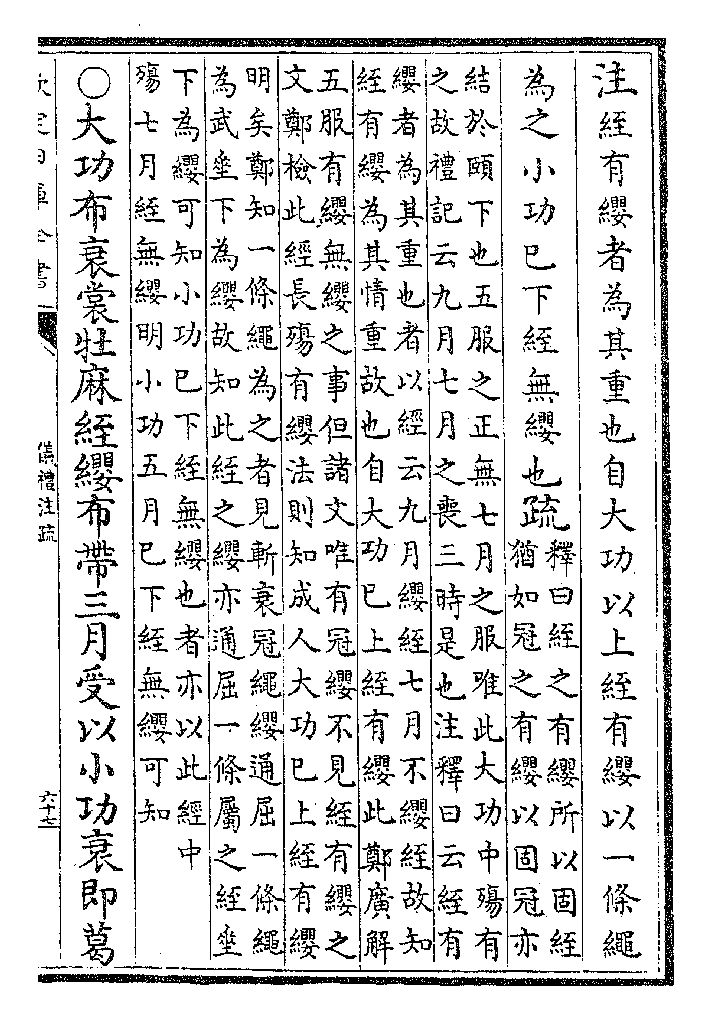 注絰有纓者為其重也自大功以上絰有纓以一條繩
為之小功已下絰無纓也疏
釋曰絰之有纓所以固絰
猶如冠之有纓以固冠亦
結於頤下也五服之正無七月之服唯此大功中殤有
之故禮記云九月七月之喪三時是也注釋曰云絰有
纓者為其重也者以經云九月纓絰七月不纓絰故知
絰有纓為其情重故也自大功已上絰有纓此鄭廣解
五服有纓無纓之事但諸文唯有冠纓不見絰有纓之
文鄭檢此經長殤有纓法則知成人大功已上絰有纓
明矣鄭知一條繩為之者見斬衰冠繩纓通屈一條繩
為武垂下為纓故知此絰之纓亦通屈一條屬之絰垂
下為纓可知小功已下絰無纓也者亦以此經中
殤七月絰無纓明小功五月已下絰無纓可知
○大功布衰裳牡麻絰纓布帶三月受以小功衰即葛
欽定四庫全書
儀禮注疏
六十七